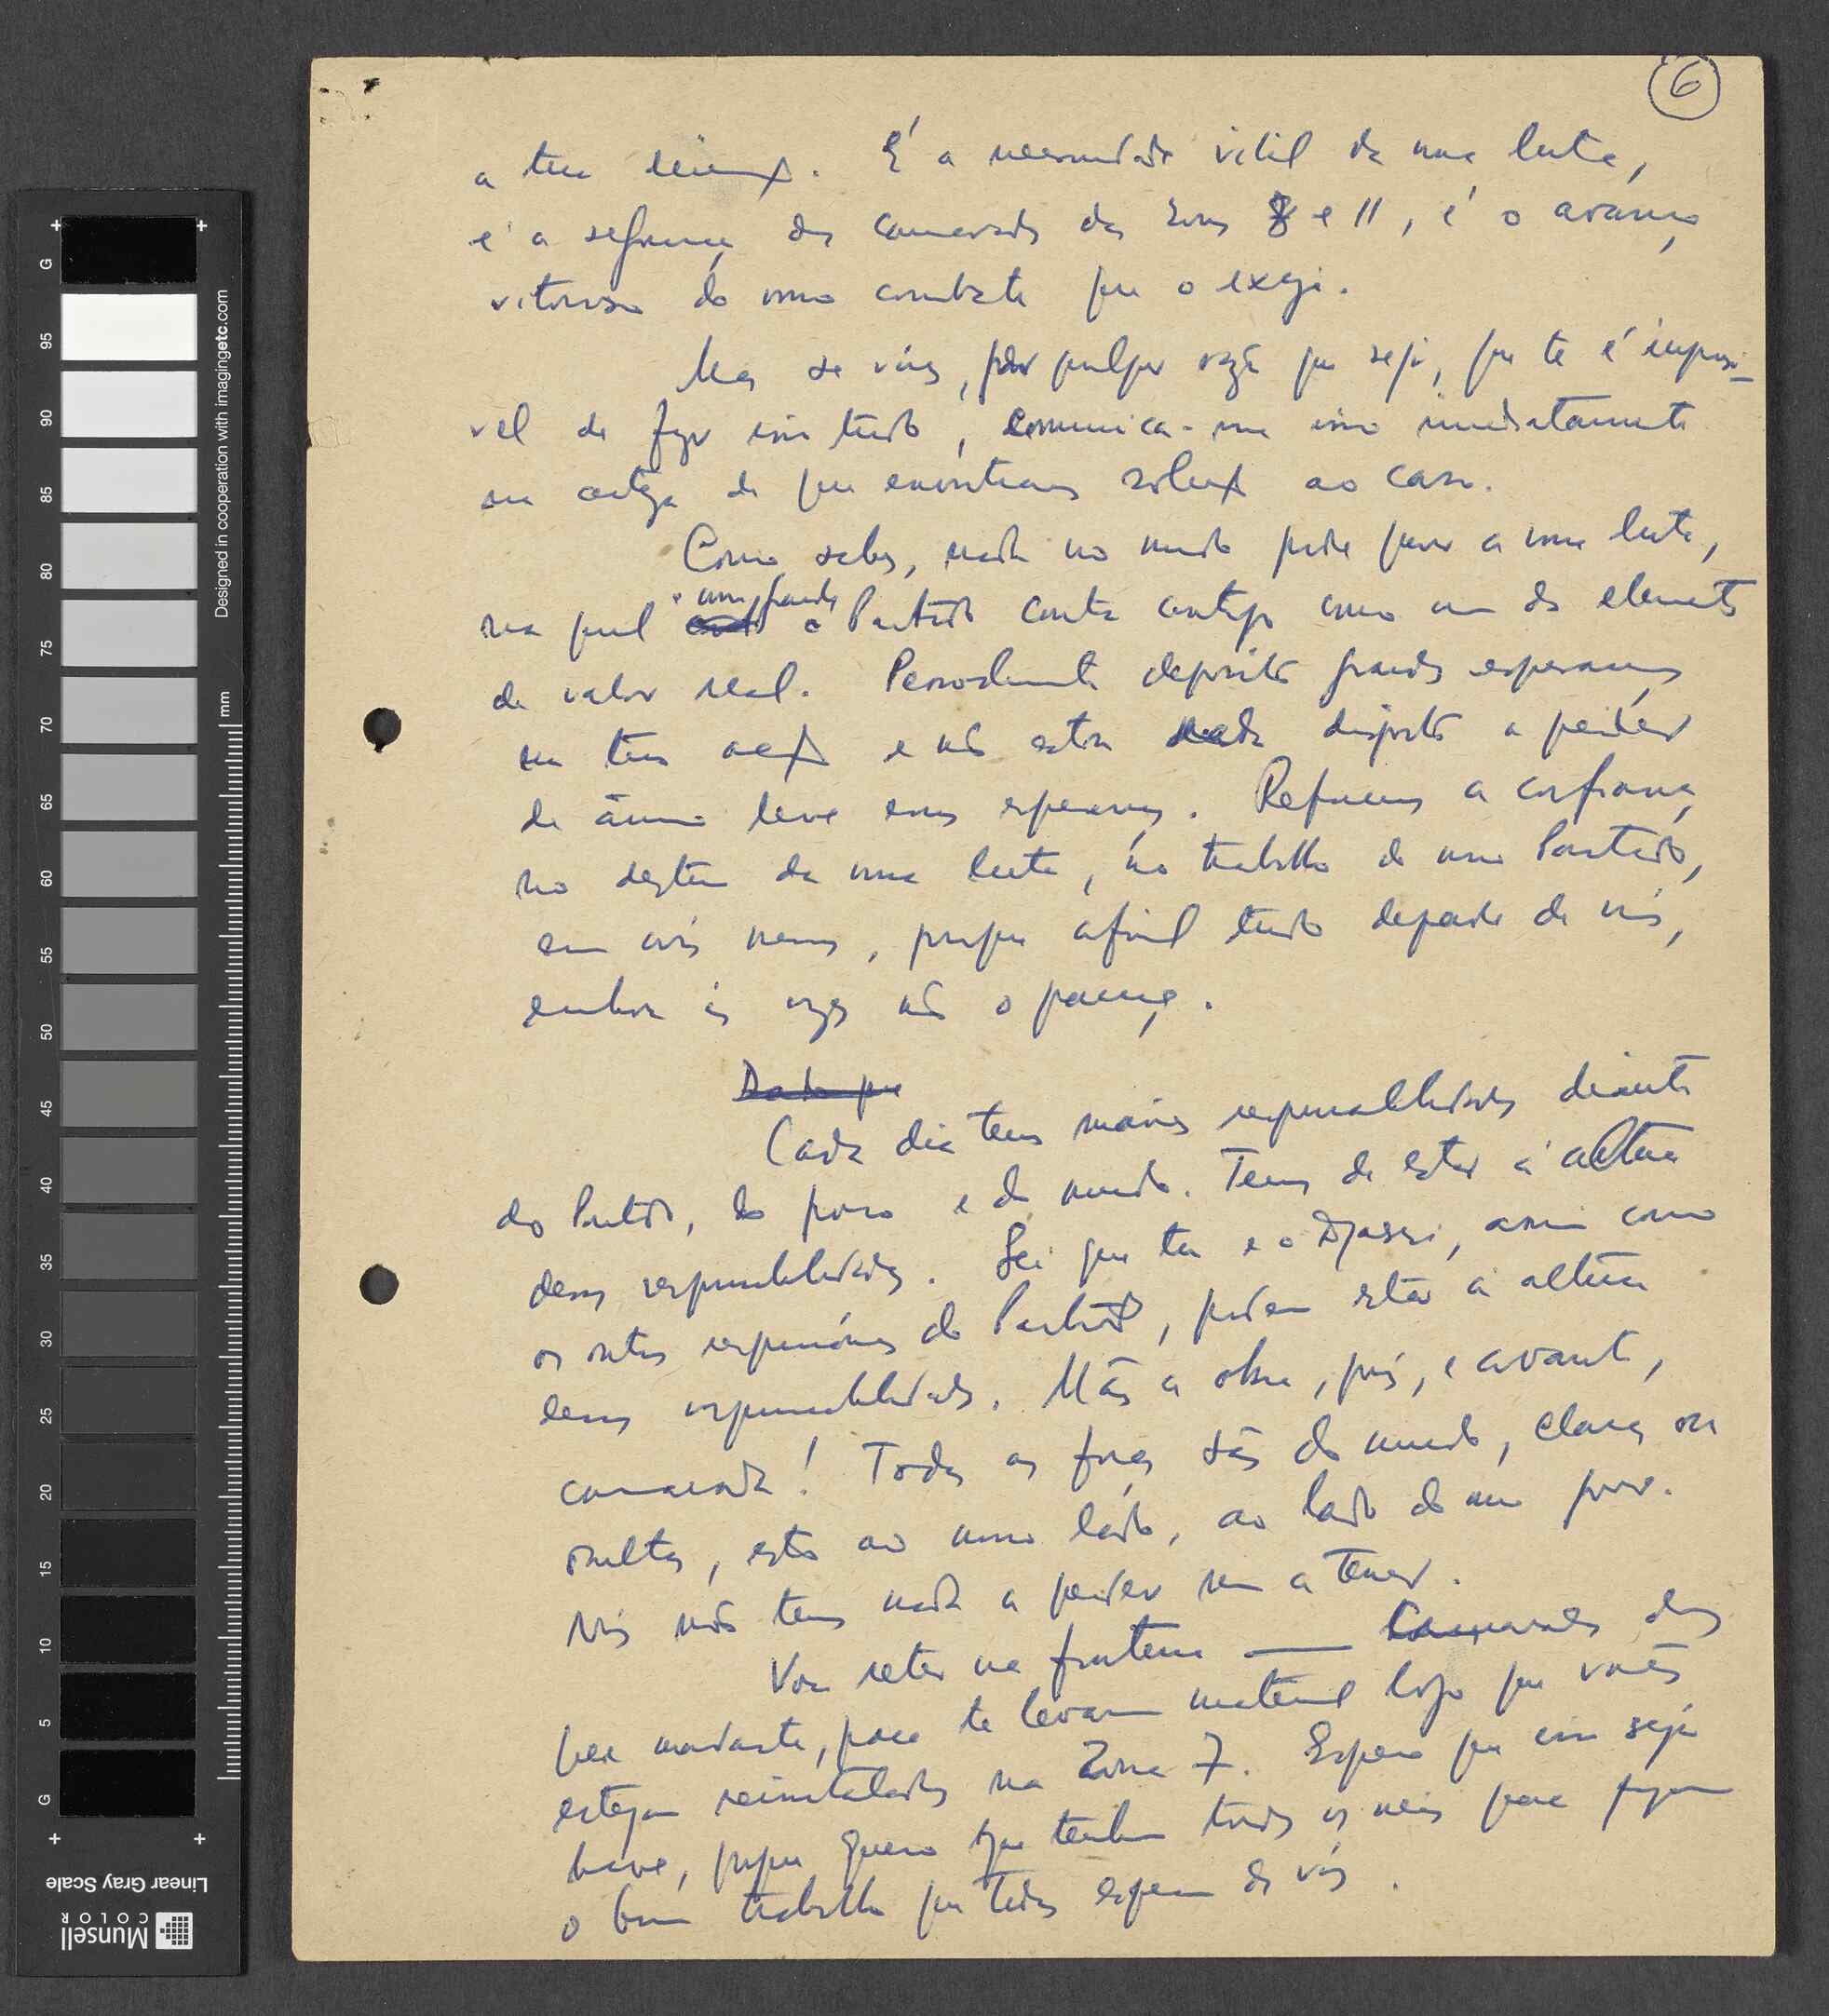 6
a tua reunião. É a necessidade vital da nossa luta,
é a segurança dos camaradas das Zonas 8 e 11, é o avanço
vitorioso do nosso combate que o exige.
Mas se vires, por qualquer razão que seja, que te é impossí-
vel de fazer isso tudo, comunica-me isso imediatamente
na certeza de que encontramos solução ao caso.
Como sabes, nada no mundo pode parar a nossa luta,
na qual o nosso grande Partido conta contigo como um dos elementos
de valor real. Pessoalmente deposito grandes esperanças
na tua acção e não estou nada disposto a perder
de ânimo leve essas esperanças. Reforcemos a confiança
no destino da nossa luta, no trabalho do nosso Partido,
em nós mesmos, porque afinal tudo depende de nós,
embora às vezes não o pareça.
Dado que
Cada dia temos maiores responsabilidades diante
do Partido, do povo e do mundo. Temos de estar à altura
dessas responsabilidades. Sei que tu e o Djassi, assim como
os outros responsáveis do Partido, podem estar à altura
dessas responsabilidades. Mãos à obra, pois, e avante,
camarada! Todas as forças sãs do mundo, claras ou
ocultas, estão ao nosso lado, ao lado do nosso povo.
Nós não temos nada a perder nem a temer.
Vou reter na fronteira — camaradas dos
que mandaste, para te levarem material logo que vocês
estejam reinstalados na Zona 7. Espero que isso seja
breve, porque quero que tenham todos os meios para fazerem
o bom trabalho que todos esperam de vós.
Designed in cooperation with imagingetc.com
mm
G 95 90 85 80 75 70 65 60 55 50 45 40 35 30 25 20 15 10 5 G
Linear Gray Scale
Munsell
COLOR